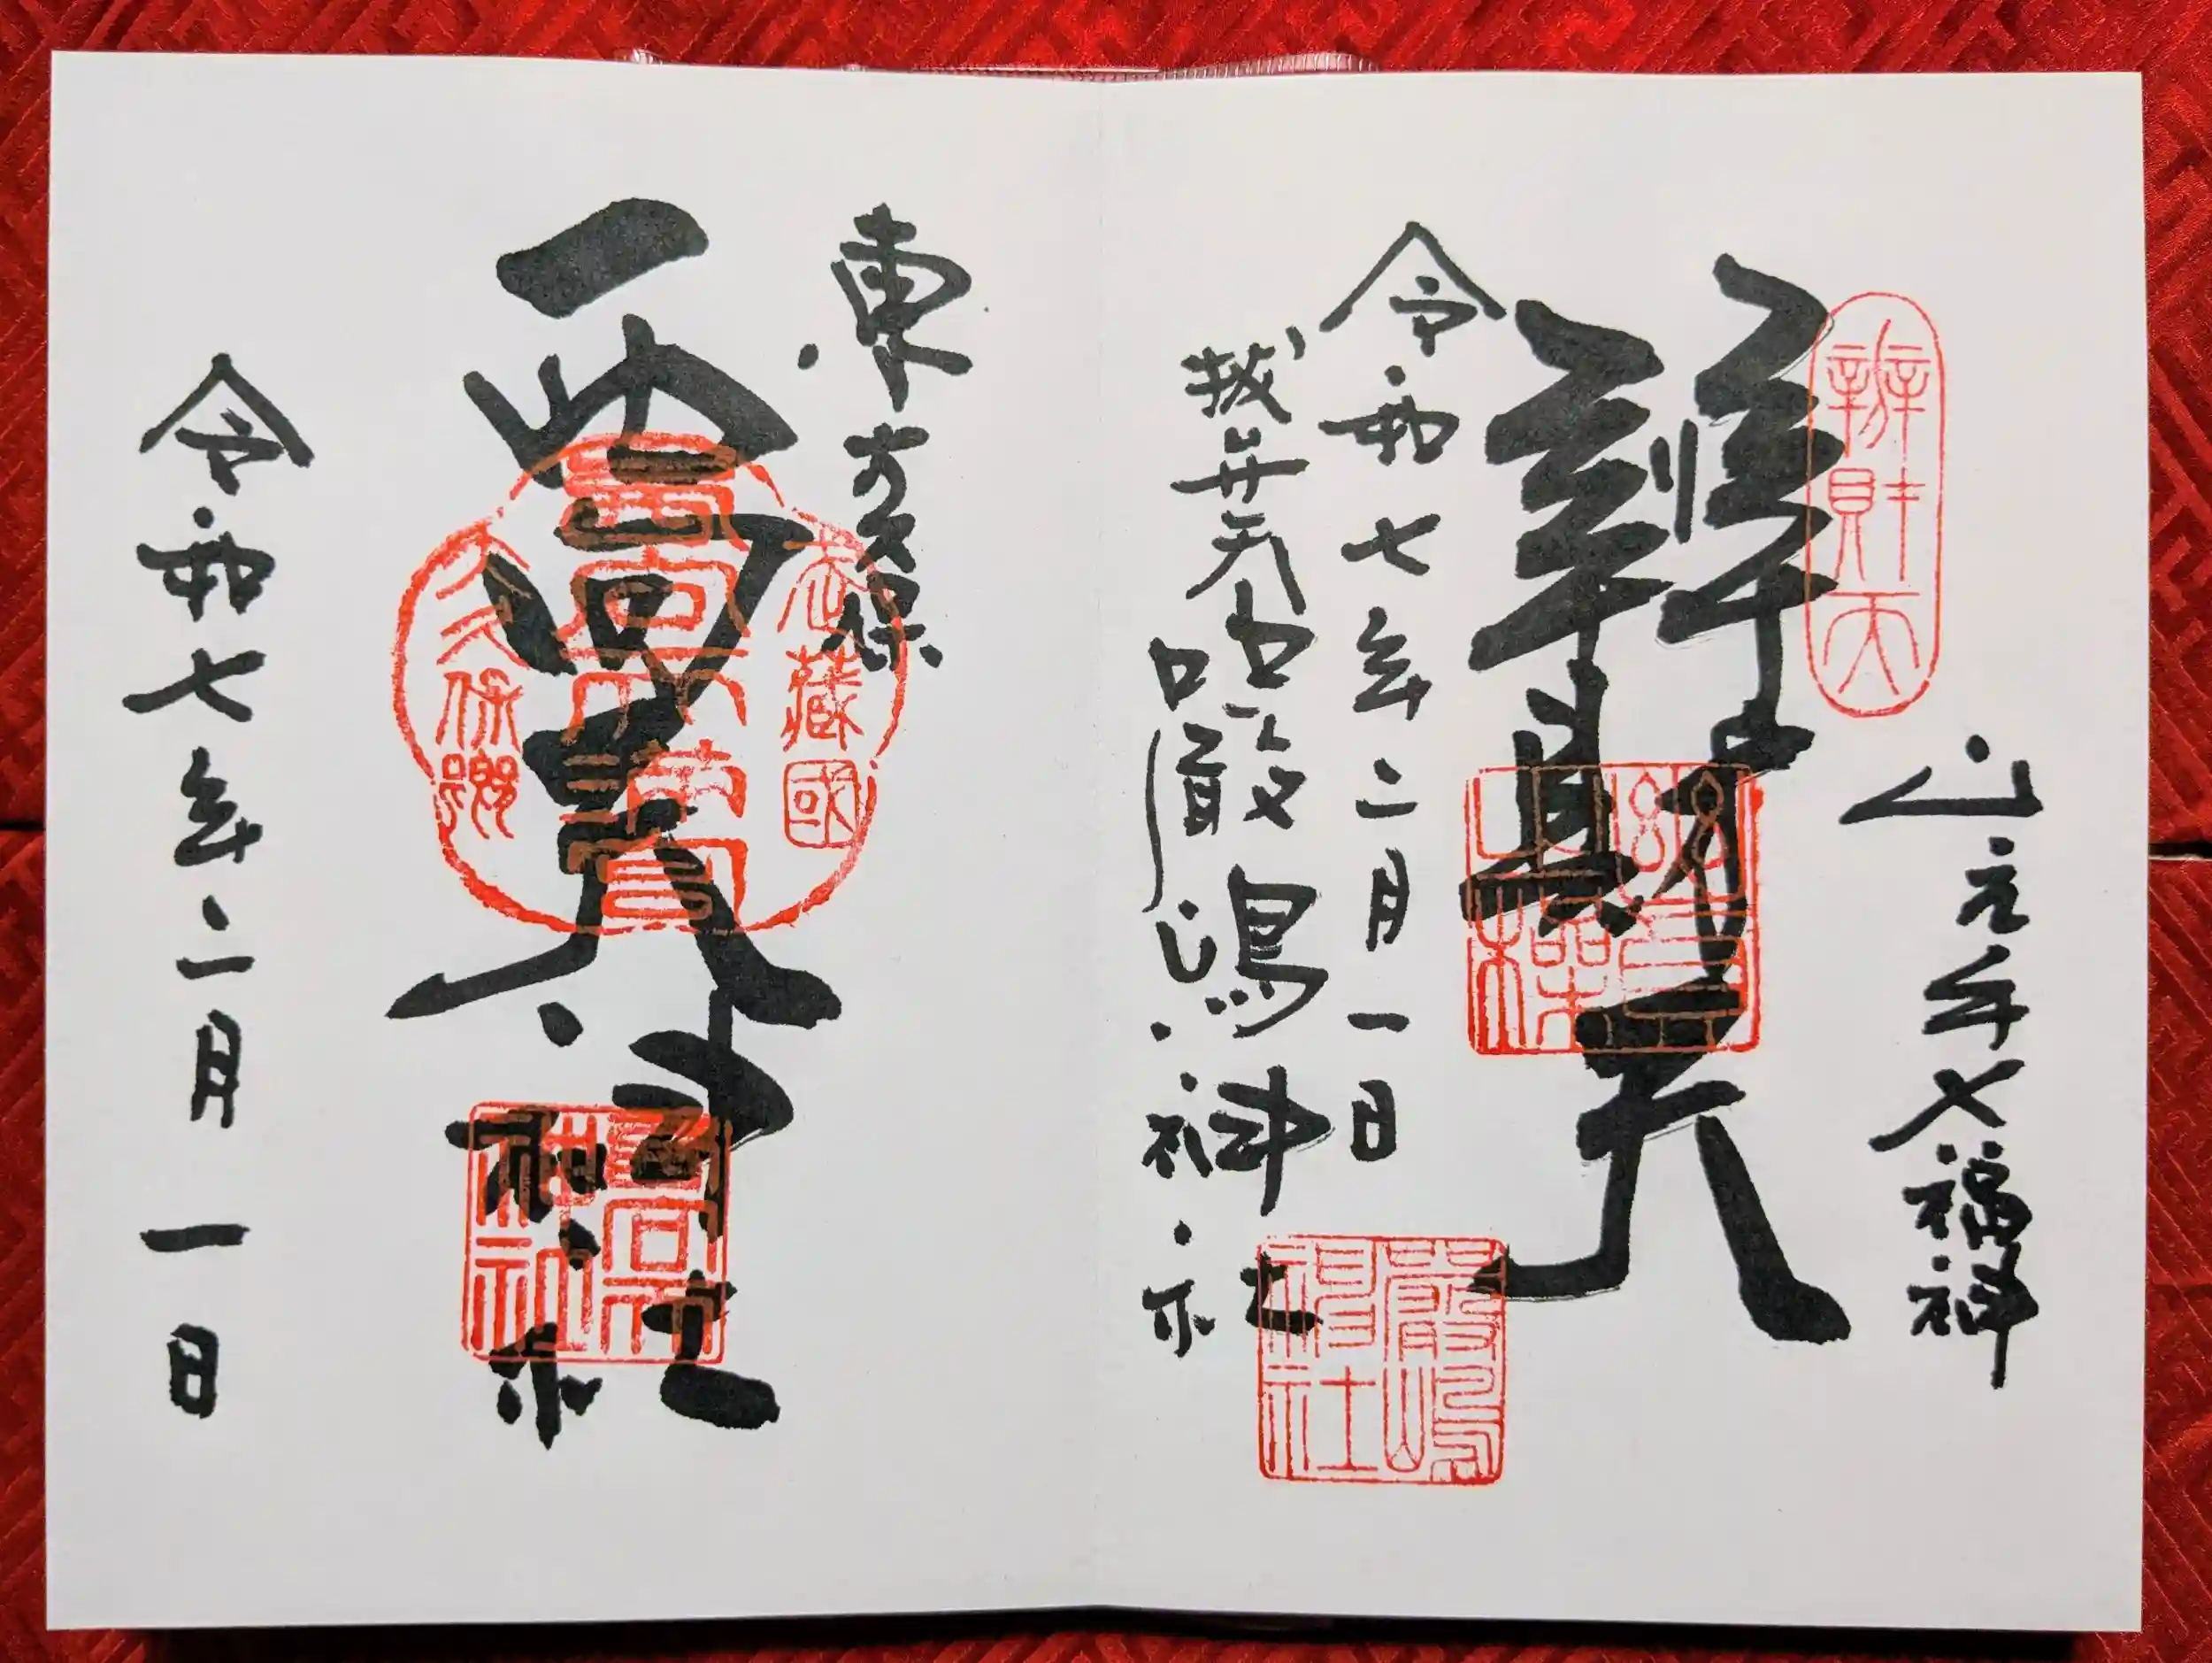 辨財天
山之手七福神
辨財天
令和七年二月一日
抜弁天
嚴嶋神社
嚴嶋神社
東大久保
西向天神社
武藏國
大久保
令和七年二月一日